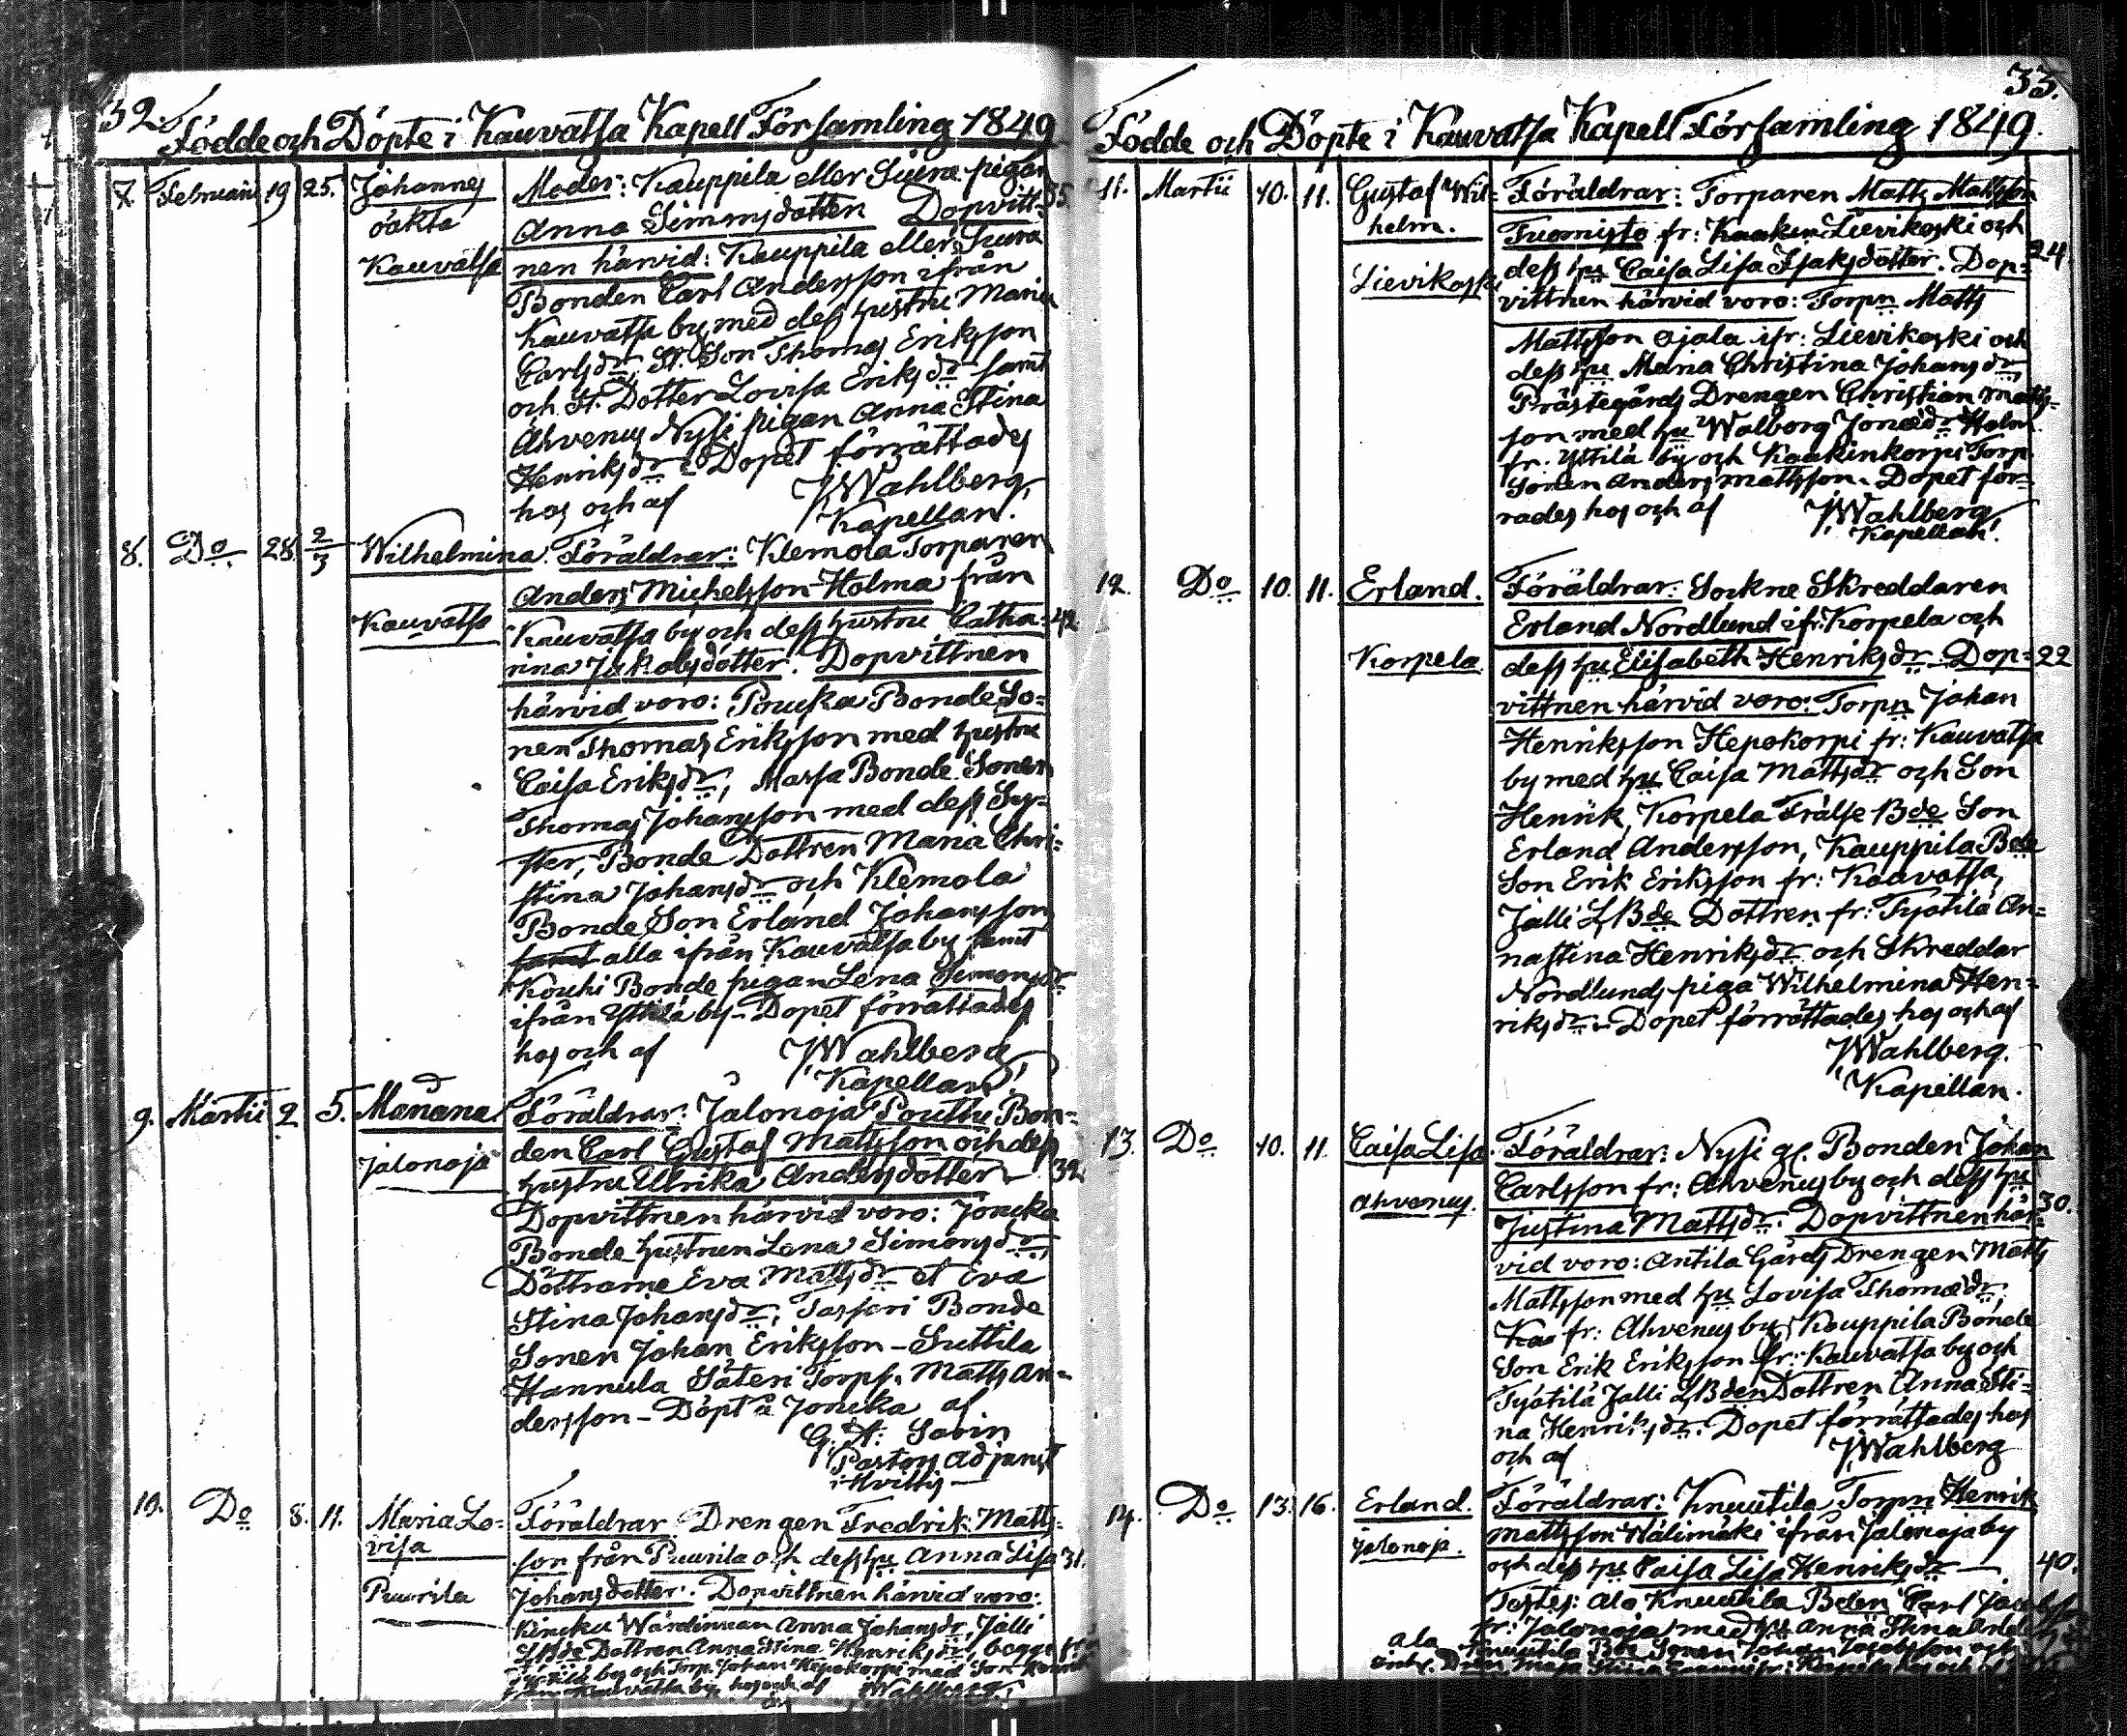 32.
Födde och Döpte i Kauvatsa Kapell Församling 1849
7. Februarii 19 25. Johannes
oäkta
Kauvatsa
Moder: Kauppila eller Siura pigan
Anna Simonsdotter Dopvitt- 35.
nen härvid: Kauppila eller Siura
Bonden Carl Andersson ifrån
Kauvatsa by med dess hustru Maria
Carlsdr, St. Son Thomas Eriksson
och St. Dotter Lovisa Eriksdr samt
Ahvenus Nysi pigan Anna Stina
Henriksdr - Dopet förrättades
hos och af JWahlberg,
Kapellan.
8. Do 28 2/3 Wilhelmina.
Kauvatsa
Föräldrar: Klemola Torparen
Anders Michelsson Holma från
Kauvatsa by och dess hustru Catha- 42.
rina Jakobsdotter. Dopvittnen
härvid voro: Pouka Bonde So-
nen Thomas Eriksson med hustru
Caisa Eriksdr, Massa Bonde Sonen
Thomas Johansson med dess Sy-
ster, Bonde Dottren Maria Chri-
stina Johansdr och Klemola
Bonde Son Erland Johansson
samt alla ifrån Kauvatsa by samt
Kouhi Bonde pigan Lena Simonsdr
ifrån Yttilä by - Dopet förrättades
hos och af JWahlberg
Kapellan.
9. Martii 2 5. Mariana
Jalonoja
Föräldrar: Jalonoja Pouttu Bon-
den Carl Gustaf Mattsson och dess
hustru Ulrika Andersdotter 32.
Dopvittnen härvid voro: Joncka
Bonde hustrun Lena Simonsdr,
Döttrarne Eva Mattsdr et Eva
Stina Johansdr, Bonde
Sonen Johan Eriksson - Suttila
Hannula Säteri Torps. Matts An-
dersson - Döpt å Joncka af
G. A. Savin
Pastors Adjunct
i Hvittis
10. Do 8. 11. Maria Lo-
visa
Puurila
Föräldrar Drengen Fredrik Matts-
son från Puurila och dess hu Anna Lisa 31.
Johansdotter. Dopvittnen härvid voro:
Anna Johansdr, Jalli
LBde Dottren Anna Stina Henriksdr, begge
by och Torp. Johan Hepokorpi med Son
Kauvatsa by hos och af JWahlberg
33.
Födde och Döpte i Kauvatsa Kapell Församling 1849.
11. Martii 10. 11. Gustaf Wil-
helm.
Lievikoski
Föräldrar: Torparen Matts Mattsson
Tuomisto fr: Lievikoski och
dess hu Caisa Lisa Isaksdotter. Dop- 24.
vittnen härvid voro: Torpn Matts
Mattsson Ojala ifr: Lievikoski och
dess hu Maria Christina Johansdr,
Prästegårds Drengen Christian Matts-
son med hu Walborg Jonædr Holm
fr. Yttilä by och Kaakinkorpi Torp
Sonen Anders Mattsson. Dopet för-
rades hos och af JWahlberg
Kapellan.
12. Do 10. 11. Erland.
Korpela.
Föräldrar: Sockne Skreddaren
Erland Nordlund ifr: Korpela och
dess hu Elisabeth Henriksdr Dop- 22
vittnen härvid voro: Torpn Johan
Henriksson Hepokorpi fr: Kauvatsa
by med hu Caisa Mattsdr och Son
Henrik, Korpela Frälse Bde Son
Erland Andersson, Kauppila Bde
Son Erik Eriksson fr: Kauvatsa,
Jalli LBde Dottren fr: Työtilä An-
nastina Henriksdr och Skreddar
Nordlunds piga Wilhelmina Hen-
riksdr - Dopet förrättades hos och af
JWahlberg.
Kapellan.
13. Do 10. 11. Caisa Lisa.
Ahvenus.
Föräldrar: Nysi gl. Bonden Johan
Carlsson fr: Ahvenus by och dess hu
Justina Mattsdr. Dopvittnen här- 30.
vid voro: Antila Gårds Drengen Matts
Mattsson med hu Lovisa Thomædr,
Kao fr: Ahvenus by, Kauppila Bonde
Son Erik Eriksson fr: Kauvatsa by och
Työtilä Jalli LBden Dottren Anna Sti-
na Henriksdr. Dopet förrättades hos
och af JWahlberg
14. Do 13. 16. Erland.
Jalonoj.
Föräldrar: Knuutila Torpn Henrik
Mattsson Wälimäki ifrån Jalonoja by
och dess hu Caisa Lisa Henriksdr 40.
Testes: Ala Knuutila Bden Carl
fr: Jalonoja med hu Anna Stina
Ala Knuutila Bde Sonen Johan Jacobsson och